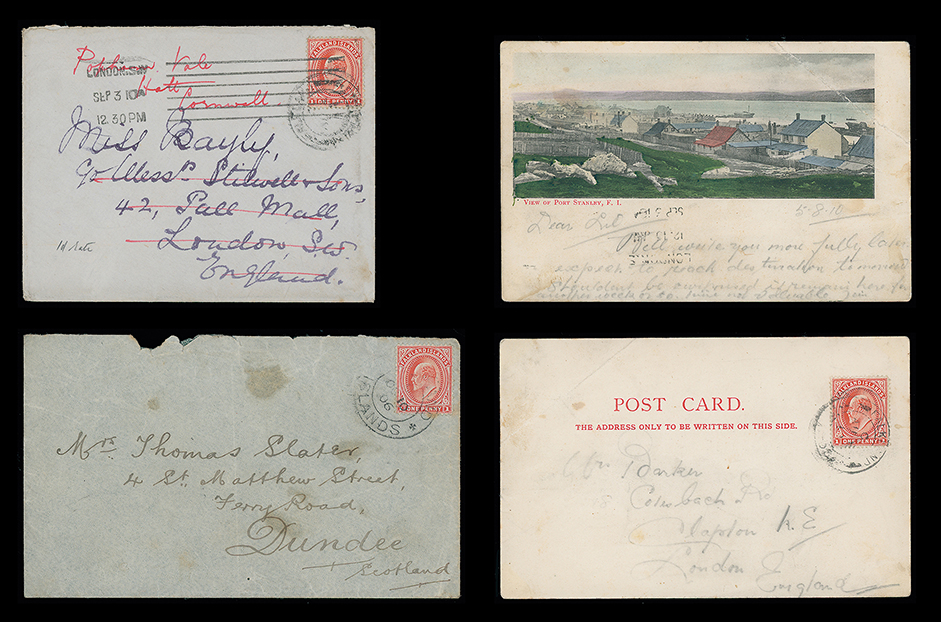 FALKLAND ISLANDS
ONE PENNY
Vale
Hatt
Cornwall
LONDON. S.W
SEP 3 10
12.30PM
Miss Bayly,
c/o Messrs. Stilwell & Sons
42, Pall Mall,
London, S.W.
England.
VIEW OF PORT STANLEY, F. I.
5-8-10
Dear Lil
Will write you more fully later
expect to reach destination tomorrow
Shouldn't be surprised if remain here for
another week or so
FALKLAND ISLANDS
ONE PENNY
ISLANDS
06
Mrs. Thomas Slater,
4 St. Matthew Street,
Ferry Road,
Dundee
Scotland
POST CARD.
THE ADDRESS ONLY TO BE WRITTEN ON THIS SIDE.
FALKLAND ISLANDS
ONE PENNY
Parker
Clapton N.E
London England